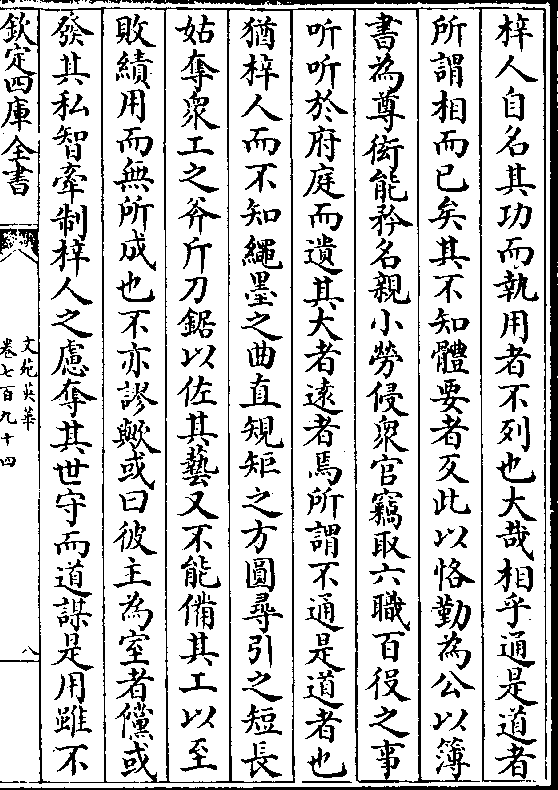 梓人自名其功而執用者不列也大哉相乎通是道者
所謂相而已矣其不知體要者反此以恪勤為公以簿
書為尊衒能矜名親小勞侵衆官竊取六職百役之事
听听於府庭而遺其大者逺者焉所謂不通是道者也
猶梓人而不知繩墨之曲直䂓矩之方圓尋引之短長
姑奪衆工之斧斤刀鋸以佐其藝又不能備其工以至
敗績用而無所成也不亦謬歟或曰彼主為室者儻或
發其私智牽制梓人之慮奪其世守而道謀是用雖不
欽定四庫全書
文苑英華
卷七百九十四
八